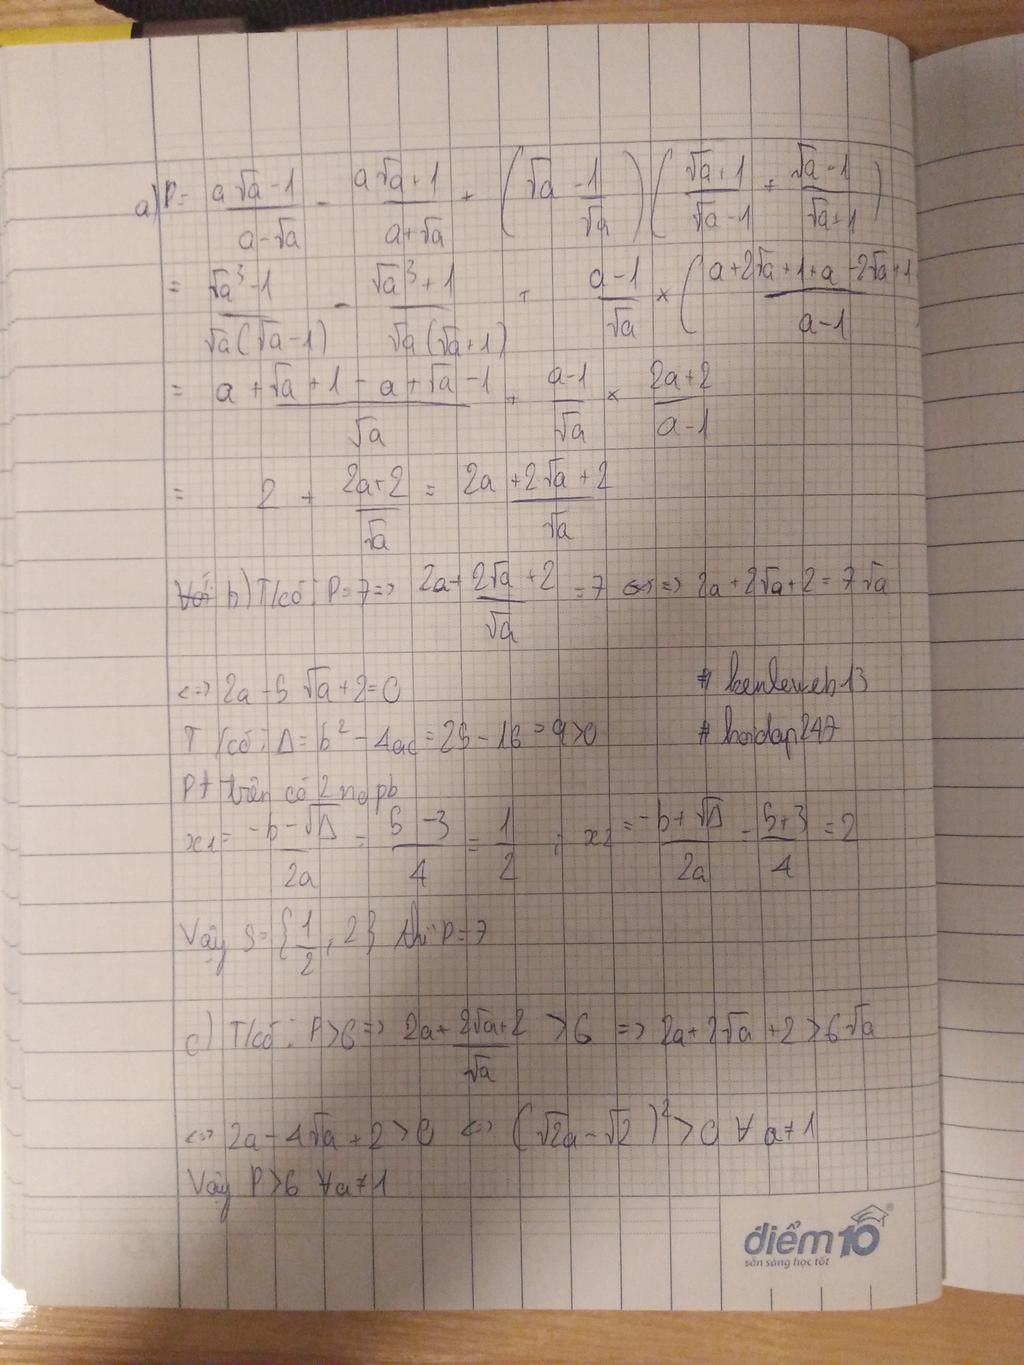 a) P = (a√a - 1)/(a - √a) - (a√a + 1)/(a + √a) + (√a - 1/√a)((√a + 1)/(√a - 1) + (√a - 1)/(√a + 1))
= (√a³ - 1)/(√a(√a - 1)) - (√a³ + 1)/(√a(√a + 1)) + (a - 1)/√a × ((a + 2√a + 1 + a - 2√a + 1)/(a - 1)
= (a + √a + 1 - a + √a - 1)/√a + (a - 1)/√a × (2a + 2)/(a - 1)
= 2 + (2a + 2)/√a = (2a + 2√a + 2)/√a
b) T/có: P = 7 => (2a + 2√a + 2)/√a = 7 => 2a + 2√a + 2 = 7√a
<=> 2a - 5√a + 2 = 0 # kenleweb13
T/có: Δ = b² - 4ac = 25 - 16 = 9 > 0 # hoidap247
Pt trên có 2 no pb
x1 = (-b - √Δ)/2a = (5 - 3)/4 = 1/2 ; x2 = (-b + √Δ)/2a = (5 + 3)/4 = 2
Vậy S = {1/2, 2} thì P = 7
c) T/có: P > 6 => (2a + 2√a + 2)/√a > 6 => 2a + 2√a + 2 > 6√a
<=> 2a - 4√a + 2 > 0 <=> (√2a - √2)² > 0 ∀ a ≠ 1
Vậy P > 6 ∀a ≠ 1
điểm10
sẵn sàng học tốt